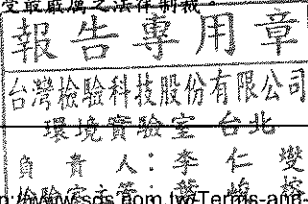 受最嚴厲之法律制裁。
報告專用章
台灣檢驗科技股份有限公司
環境實驗室-台北
負責人：李仁燮
檢驗室主管：葉峻榕
www.sgs.com.tw/Terms-and